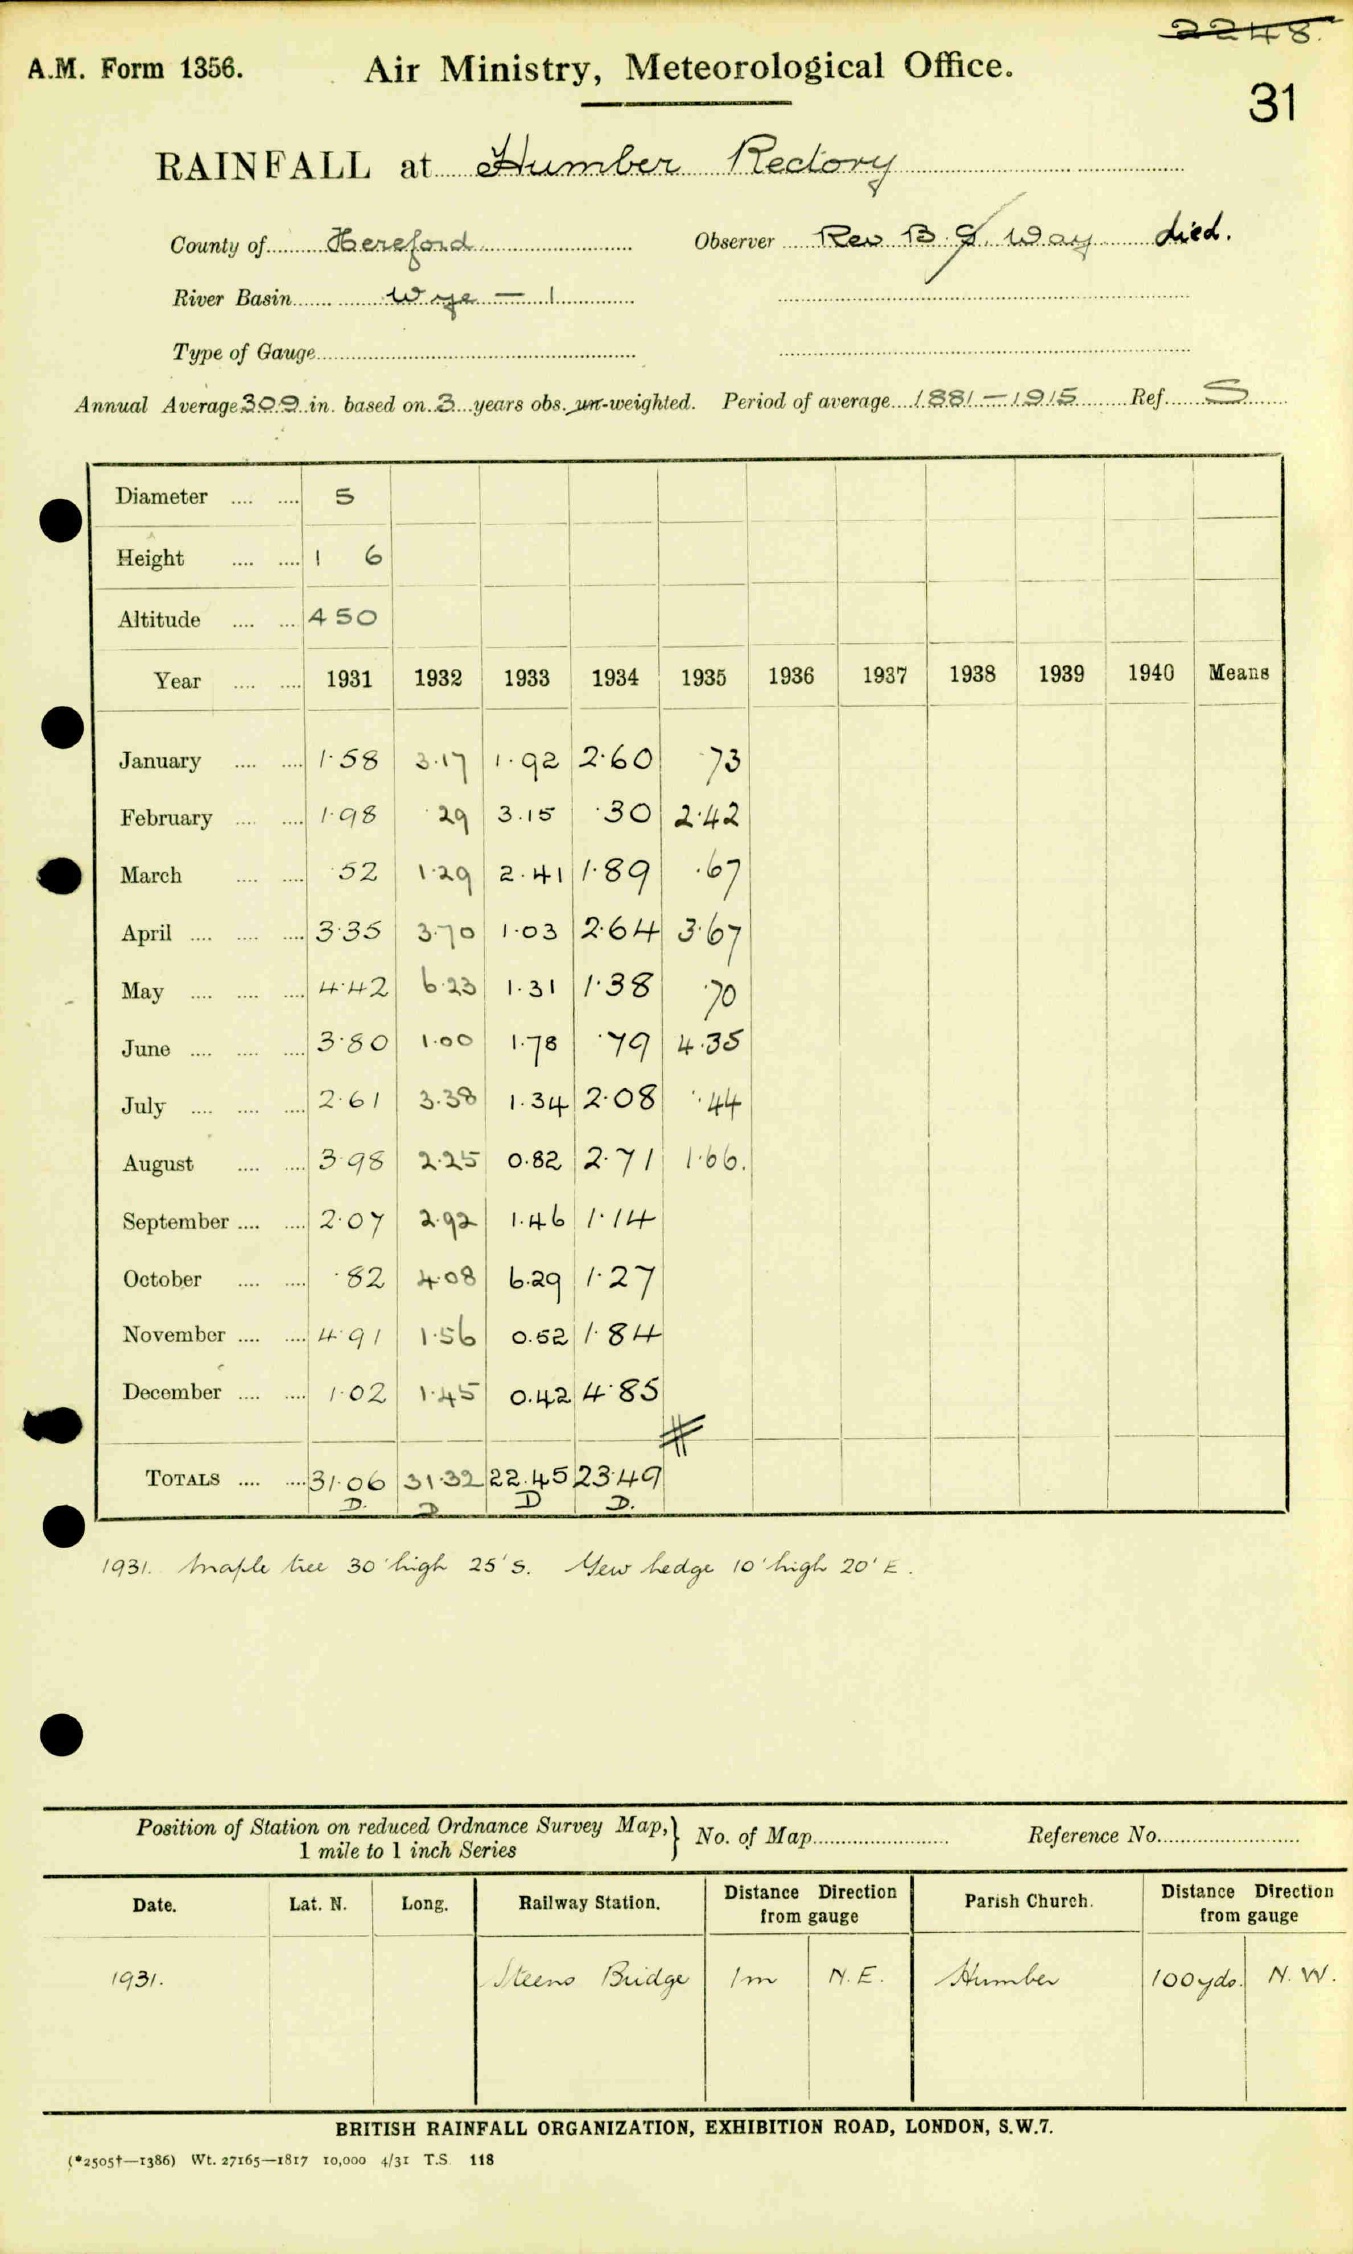 2248.
A.M. Form 1356. Air Ministry, Meteorological Office.
31
RAINFALL at Humber Rectory
County of Hereford Observer Rev B. G. Way died.
River Basin Wye — 1
Type of Gauge
Annual Average 30.9 in. based on 3 years obs. un-weighted. Period of average 1881-1915 Ref. S
Diameter .... .... 5
Height .... .... 1 6
Altitude .... .... 450
Year .... .... 1931 1932 1933 1934 1935 1936 1937 1938 1939 1940 Means
January .... .... 1.58 3.17 1.92 2.60 .73
February .... .... 1.98 .29 3.15 .30 2.42
March .... .... .52 1.29 2.41 1.89 .67
April .... .... .... 3.35 3.70 1.03 2.64 3.67
May .... .... .... 4.42 6.23 1.31 1.38 .70
June .... .... .... 3.80 1.00 1.78 .79 4.35
July .... .... .... 2.61 3.38 1.34 2.08 .44
August .... .... 3.98 2.25 0.82 2.71 1.66.
September .... .... 2.07 2.92 1.46 1.14
October .... .... .82 4.08 6.29 1.27
November .... .... 4.91 1.56 0.52 1.84
December .... .... 1.02 1.45 0.42 4.85
TOTALS .... .... 31.06 31.32 22.45 23.49
D. D D D.
1931. Maple tree 30' high 25' S. Yew hedge 10' high 20' E.
Position of Station on reduced Ordnance Survey Map, } No. of Map Reference No.
1 mile to 1 inch Series
Date. Lat. N. Long. Railway Station. Distance Direction from gauge Parish Church. Distance Direction from gauge
1931. Steens Bridge 1m N.E. Humber 100yds. N.W.
BRITISH RAINFALL ORGANIZATION, EXHIBITION ROAD, LONDON, S.W.7.
(*2505†—1386) Wt. 27165—1817 10,000 4/31 T.S. 118